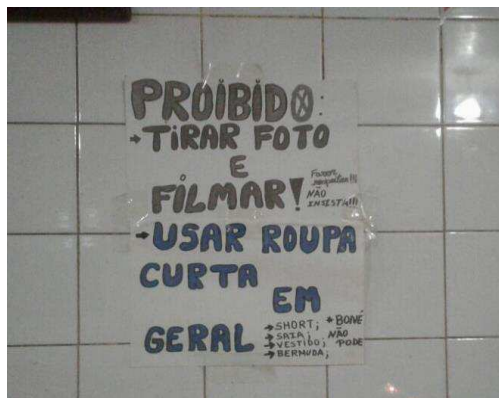 PROIBIDO:
→TIRAR FOTO
E
FILMAR!
Favor,
respeitem!!!
NÃO
INSISTA!!!
→USAR ROUPA
CURTA
EM
GERAL
→SHORT;
→SAIA;
→VESTIDO;
→BERMUDA;
*BONÉ
NÃO
PODE